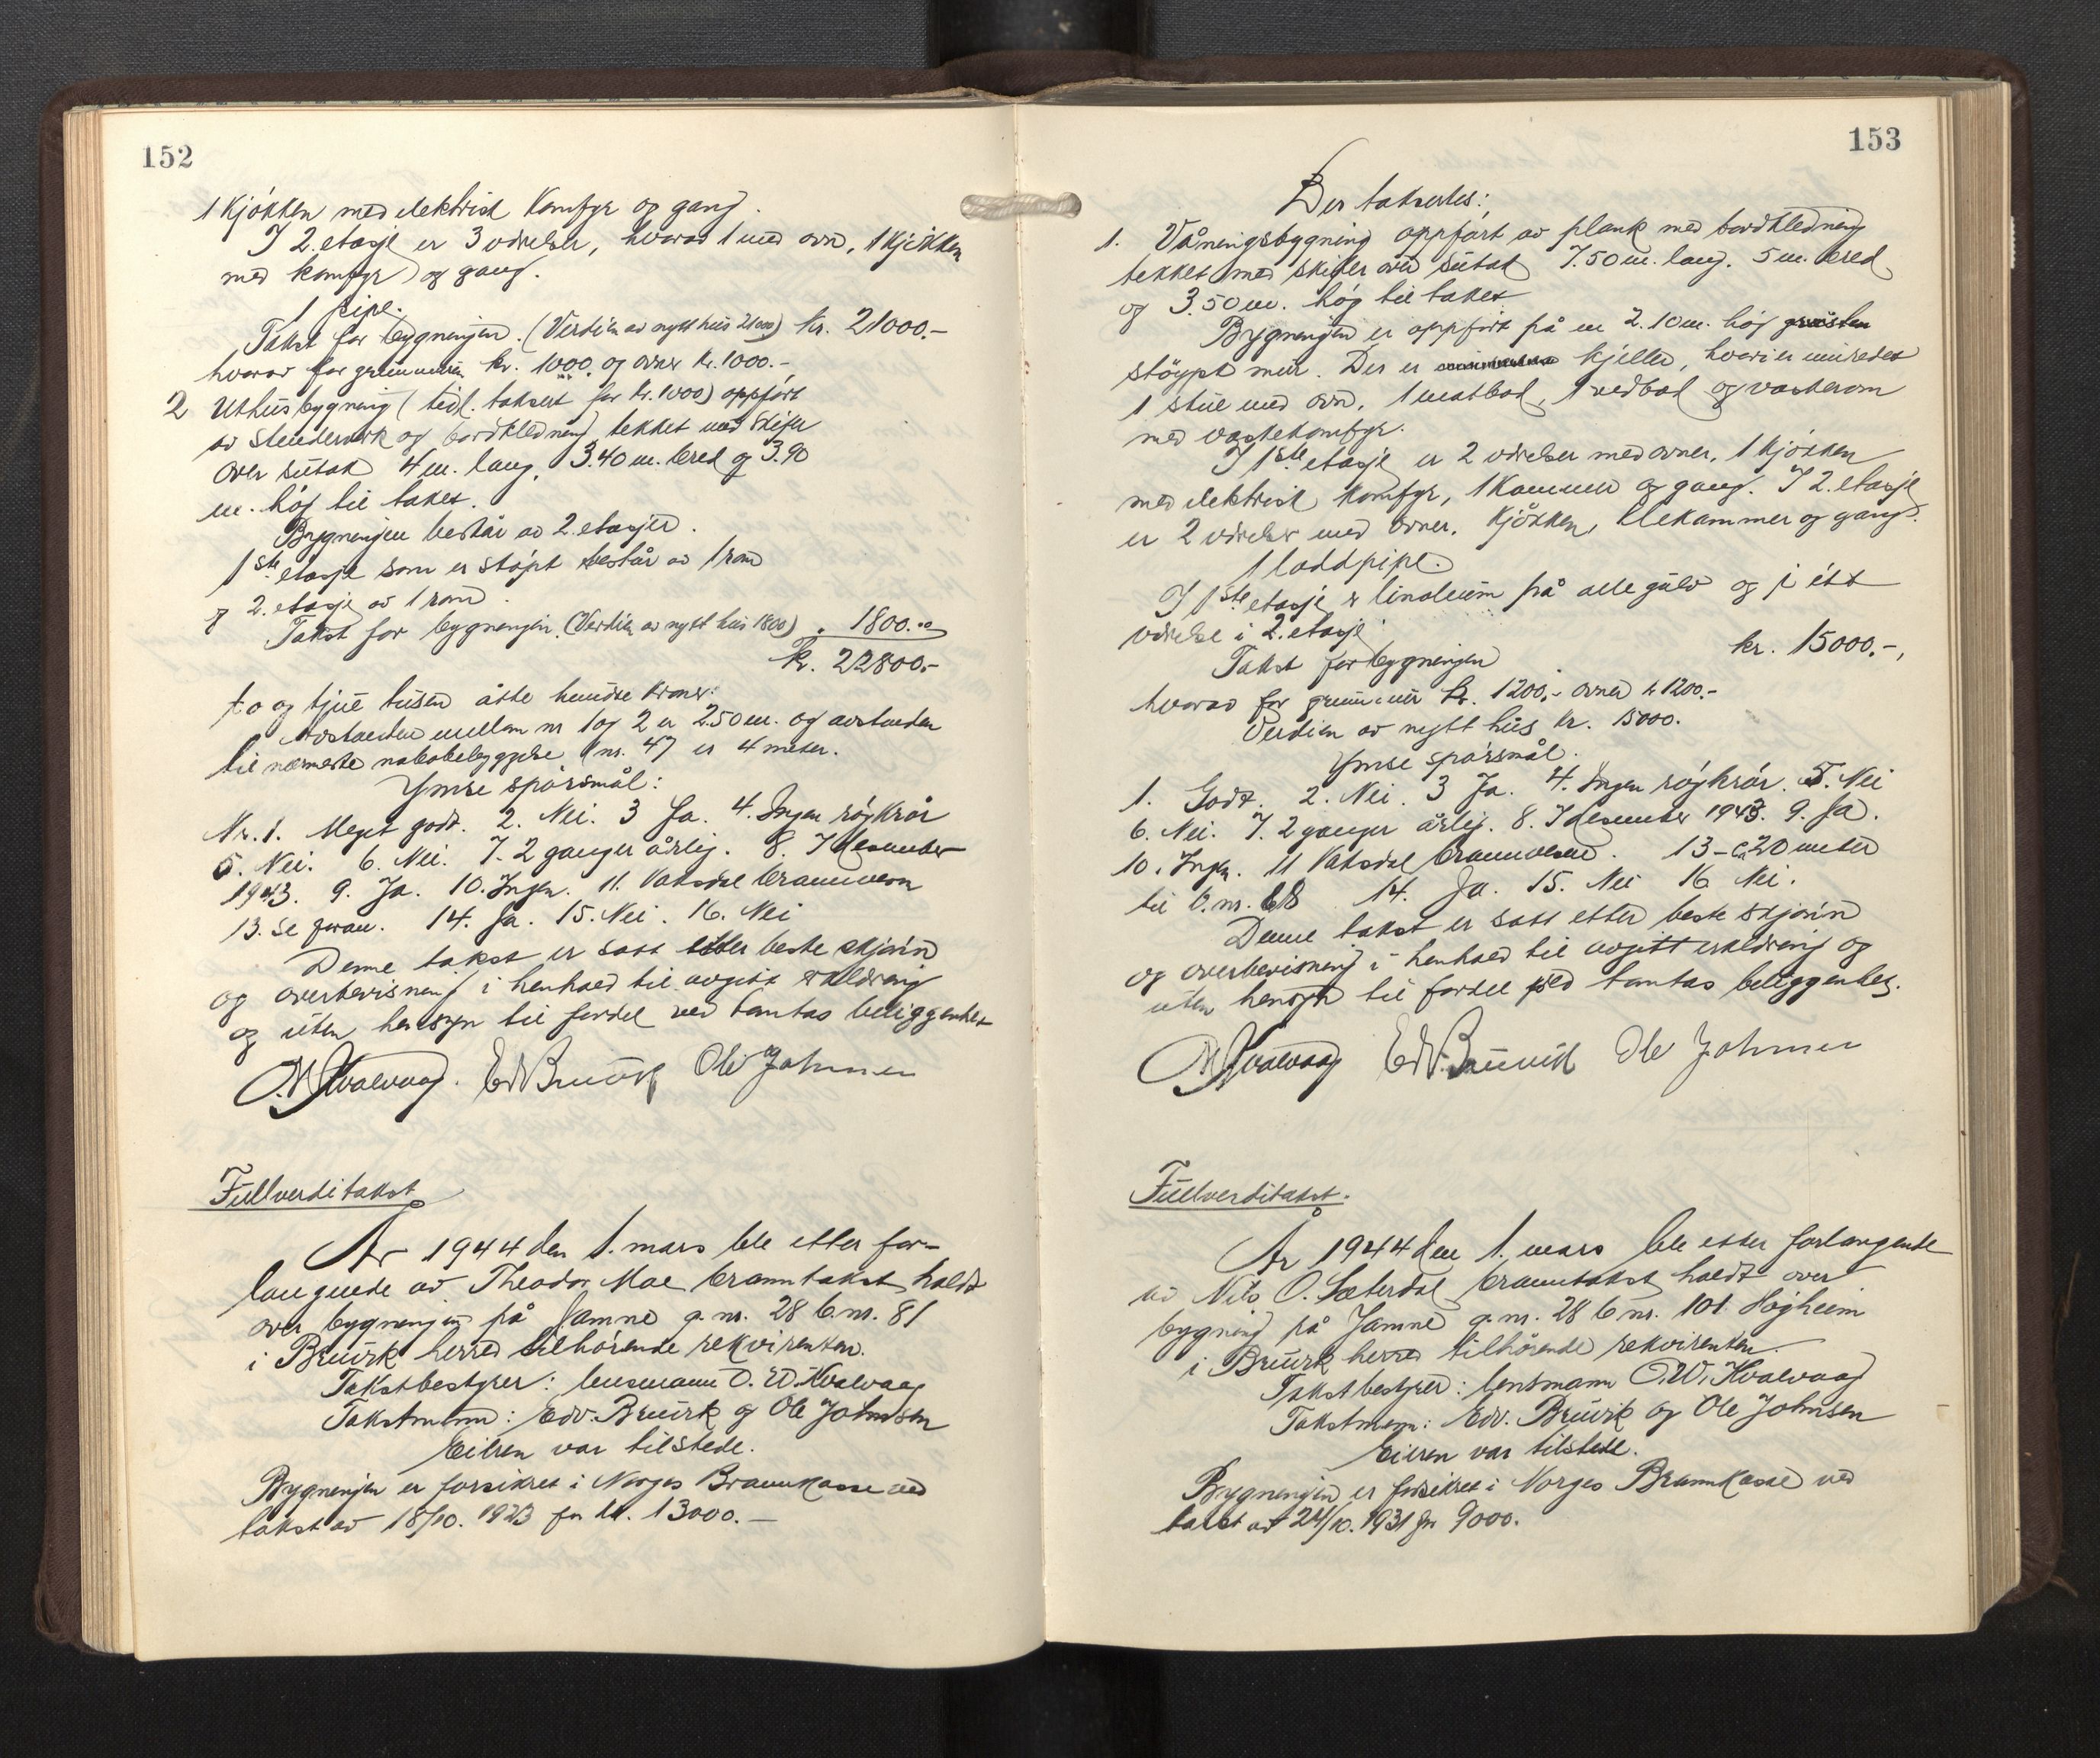 152
1 kjökken med elektrisk komfyr og gang.
I 2. etasje er 3 værelser, hvorav 1 med ovn, 1 kjökken
med komfyr og gang.
1 pipe.
Takst for bygningen. (Verdien av nytt hus 21000) kr. 21000.-
hvorav for grunnmur kr. 1000. og ovner kr. 1000.-
2 Uthusbygning (tidl. taksert for kr. 1000) oppfört
av stenderverk og bordkledning tekket med skifer
over sutak 4 m. lang, 3.40 m. bred og 3.90
m. höy til taket.
Bygningen består av 2. etasjer.
1ste etasje som er stöpt består av 1 rom
og 2. etasje av 1 rom.
Takst for bygningen. (Verdien av nytt hus 1800) " 1800.00
kr. 22800.-
to og tjue tusen åtte hundre kroner.
Avstanden mellem nr 1 og 2 er 2.50 m. og avstanden
til nærmeste nabobebyggelse bnr. 47 er 4 meter.
Ymse spörsmål:
Nr. 1. Meget godt. 2. Nei. 3 Ja. 4. Ingen röykrör
5. Nei. 6. Nei. 7. 2 ganger årlig. 8. 7 desember
1943. 9. Ja. 10. Ingen. 11. Vaksdal brannvern
13. Se foran. 14. Ja. 15. Nei. 16. Nei
Denne takst er satt etter beste skjönn
og overbevisning i henhold til avgitt erklæring
og uten hensyn til fordel ved tomtas beliggenhet
O.W. Kvalvaag. Edv Bruvik Ole Johnsen
Fullverditakst
År 1944 den 1. mars ble etter for-
langende av Theodor Moe branntakst holdt
over bygningen på Jamne g.nr. 28 b.nr. 81
i Bruvik herred tilhörende rekvirenten.
Takstbestyrer: lensmann O. W. Kvalvaag
Takstmenn: Edv. Bruvik og Ole Johnsen
Eieren var tilstede.
Bygningen er forsikret i Norges Brannkasse ved
takst av 18/10. 1923 for kr. 13000.-
153
Der takseres:
1. Våningsbygning oppfört av plank med bordkledning
tekket med skifer over sutak 7.50 m. lang. 5 m. bred
og 3.50 m. höy til taket
Bygningen er oppfört på en 2.10 m. höy
stöypt mur. Der er kjeller, hvori er innredet
1 stue med ovn, 1 matbod, 1 vedbod og vaskerom
med vaskekomfyr.
I 1ste etasje er 2 værelser med ovner, 1 kjökken
med elektrisk komfyr, 1 kammer og gang. I 2. etasje
er 2 værelser med ovner. Kjökken, klekammer og gang.
1 loddpipe.
I 1ste etasje er linoleum på alle gulv og i ett
værelse i 2. etasje.
Takst for bygningen kr. 15000.-,
hvorav for grunnmur kr. 1200,- ovner kr 1200.-
Verdien av nytt hus kr. 15000.
Ymse spörsmål.
1. Godt. 2. Nei. 3 Ja. 4. Ingen röykrör. 5. Nei
6. Nei. 7. 2 ganger årlig. 8. 7 desember 1943. 9. Ja.
10. Ingen. 11 Vaksdal brannvesen. 13 - ca 20 meter
til b.nr. 68 14. Ja. 15. Nei 16 Nei.
Denne takst er satt etter beste skjönn
og overbevisning i henhold til avgitt erklæring og
uten hensyn til fordel ved tomtas beliggenhet.
O.W. Kvalvaag Edv. Bruvik Ole Johnsen
Fullverditakst.
År 1944 den 1. mars ble etter forlangende
av Nils O. Sæterdal branntakst holdt over
bygning på Jamne g.nr. 28 b.nr. 101. Högheim
i Bruvik herred tilhörende rekvirenten.
Takstbestyrer: lensmann O.W. Kvalvaag
Takstmenn: Edv. Bruvik og Ole Johnsen
Eieren var tilstede.
Bygningen er forsikret i Norges Brannkasse ved
takst av 24/10. 1931 for 9000.